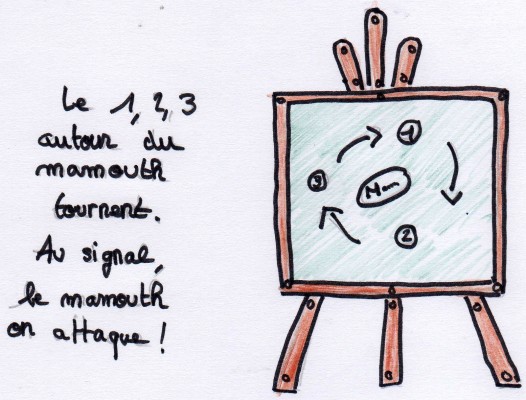 Le 1, 2, 3
autour du
mamouth
tournent.
Au signal,
le mamouth
on attaque !
1
3
Mam
2